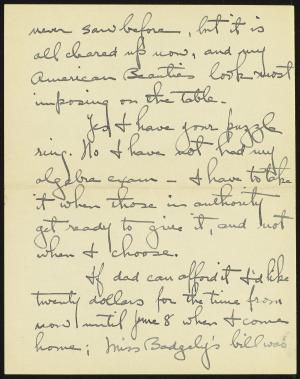 never saw before, but it is
all cleared up now, and my
American Beauties look most
imposing on the table.
Yes I have your puzzle
ring. No I have not had my
algebra exam – I have to take
it when those in authority
get ready to give it, and not
when I choose.
If dad can afford it I'd like
twenty dollars for the time from
now until June 8 when I come
home; Miss Badgely's bill was